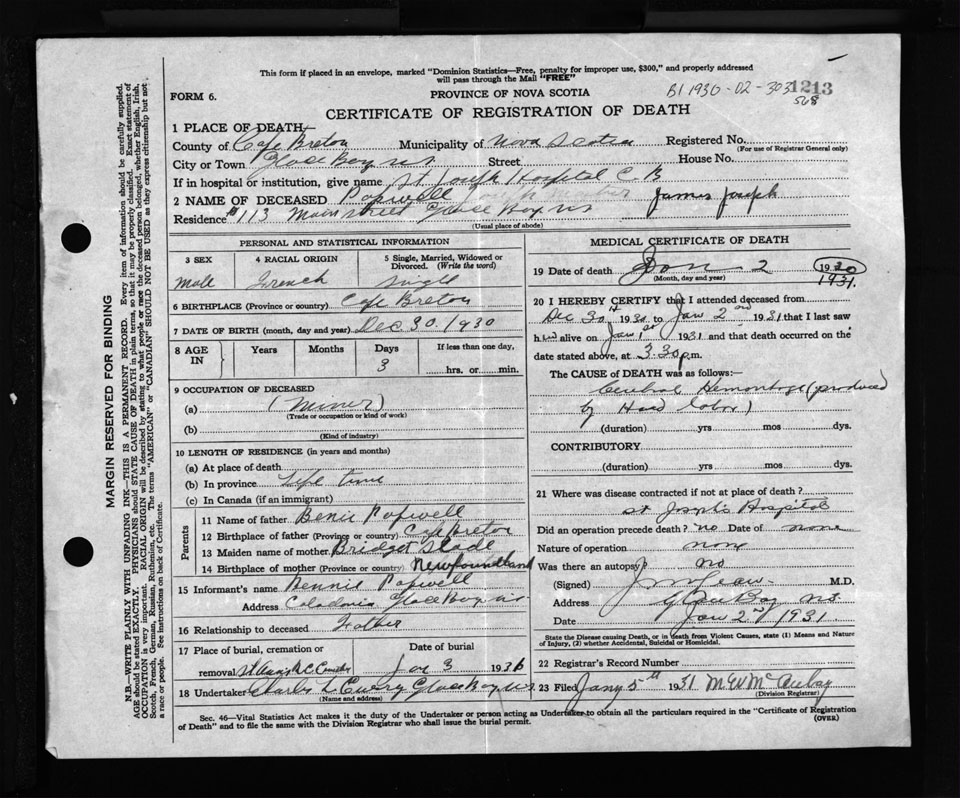 This form if placed in an envelope, marked "Dominion Statistics—Free, penalty for improper use, $300," and properly addressed
will pass through the Mail "FREE"
FORM 6.
PROVINCE OF NOVA SCOTIA
B1 1930-02-303
1213
568
CERTIFICATE OF REGISTRATION OF DEATH
1 PLACE OF DEATH
County of Cape Breton Municipality of Nova Scotia Registered No.
(For use of Registrar General only)
City or Town Glace Bay NS Street House No.
If in hospital or institution, give name St Joseph Hospital C.B
2 NAME OF DECEASED Popwell James Joseph
Residence #113 Main street Glace Bay NS
(Usual place of abode)
PERSONAL AND STATISTICAL INFORMATION
3 SEX
Male
4 RACIAL ORIGIN
French
5 Single, Married, Widowed or Divorced. (Write the word)
Single
6 BIRTHPLACE (Province or country) Cape Breton
7 DATE OF BIRTH (month, day and year) Dec 30, 1930
8 AGE IN
Years Months Days If less than one day,
3 hrs. or min.
9 OCCUPATION OF DECEASED
(a) (Miner)
(Trade or occupation or kind of work)
(b)
(Kind of industry)
10 LENGTH OF RESIDENCE (in years and months)
(a) At place of death
(b) In province Life time
(c) In Canada (if an immigrant)
Parents
11 Name of father Benie Popwell
12 Birthplace of father (Province or country) Cape Breton
13 Maiden name of mother Bridget Slade
14 Birthplace of mother (Province or country) Newfoundland
15 Informant's name Bennie Popwell
Address Caledonia Glace Bay NS
16 Relationship to deceased Father
17 Place of burial, cremation or removal
Date of burial
Jan 3 1931
18 Undertaker Charles Glace Bay N.S.
(Name and address)
MEDICAL CERTIFICATE OF DEATH
19 Date of death Jan 2 1930
(Month, day and year)
1931.
20 I HEREBY CERTIFY that I attended deceased from
Dec 30 1930 to Jan 2nd 1931 that I last saw
him alive on Jan 1st 1931 and that death occurred on the
date stated above, at 3.30 p.m.
The CAUSE of DEATH was as follows:—
Cerebral Hemorrhage (produced
by Hard labor)
(duration) yrs mos dys.
CONTRIBUTORY
(duration) yrs mos dys.
21 Where was disease contracted if not at place of death?
St Joseph's Hospital
Did an operation precede death? no Date of none
Nature of operation none
Was there an autopsy? no
(Signed) M.D.
Address Glace Bay NS.
Date Jan 2nd/1931
State the Disease causing Death, or in death from Violent Causes, state (1) Means and Nature of Injury, (2) whether Accidental, Suicidal or Homicidal.
22 Registrar's Record Number
23 Filed Jany 5th 1931
(Division Registrar)
Sec. 46—Vital Statistics Act makes it the duty of the Undertaker or person acting as Undertaker to obtain all the particulars required in the "Certificate of Registration
of Death" and to file the same with the Division Registrar who shall issue the burial permit.
(OVER)
MARGIN RESERVED FOR BINDING
N.B.—WRITE PLAINLY WITH UNFADING INK—THIS IS A PERMANENT RECORD. Every item of information should be carefully supplied.
AGE should be stated EXACTLY. PHYSICIANS should STATE CAUSE OF DEATH in plain terms, so that it may be properly classified. Exact statement of
OCCUPATION is very important. RACIAL ORIGIN will be described by stating to what people or race the deceased person belonged, whether English, Irish,
Scotch, French, German, Russian, Ruthenian, etc. The terms "AMERICAN" or "CANADIAN" SHOULD NOT BE USED as they express citizenship but not
a race or people. See instructions on back of Certificate.